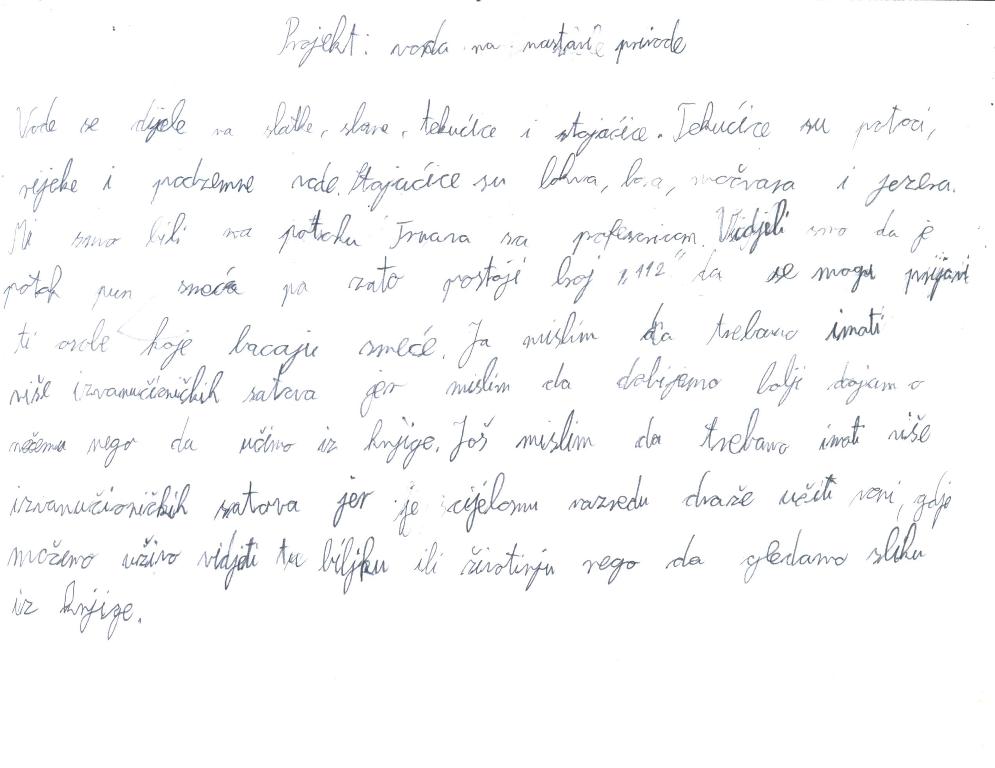 Projekt: voda na nastavi prirode
Vode se dijele na slatke, slane, tekućice i stajaćice. Tekućice su potoci,
rijeke i podzemne vode. Stajaćice su lokva, bara, močvara i jezera.
Mi smo bili na potoku Trnava sa profesoricom. Vidjeli smo da je
potok pun smeća pa zato postoji broj „112“ da se mogu prijavi
ti osobe koje bacaju smeće. Ja mislim da trebamo imati
više izvanučioničkih satova jer mislim da dobijemo bolji dojam o
nečemu nego da učimo iz knjige. Još mislim da trebamo imati više
izvanučioničkih satova jer je cijelomu razredu draže učiti vani, gdje
možemo uživo vidjeti tu biljku ili životinju nego da gledamo sliku
iz knjige.